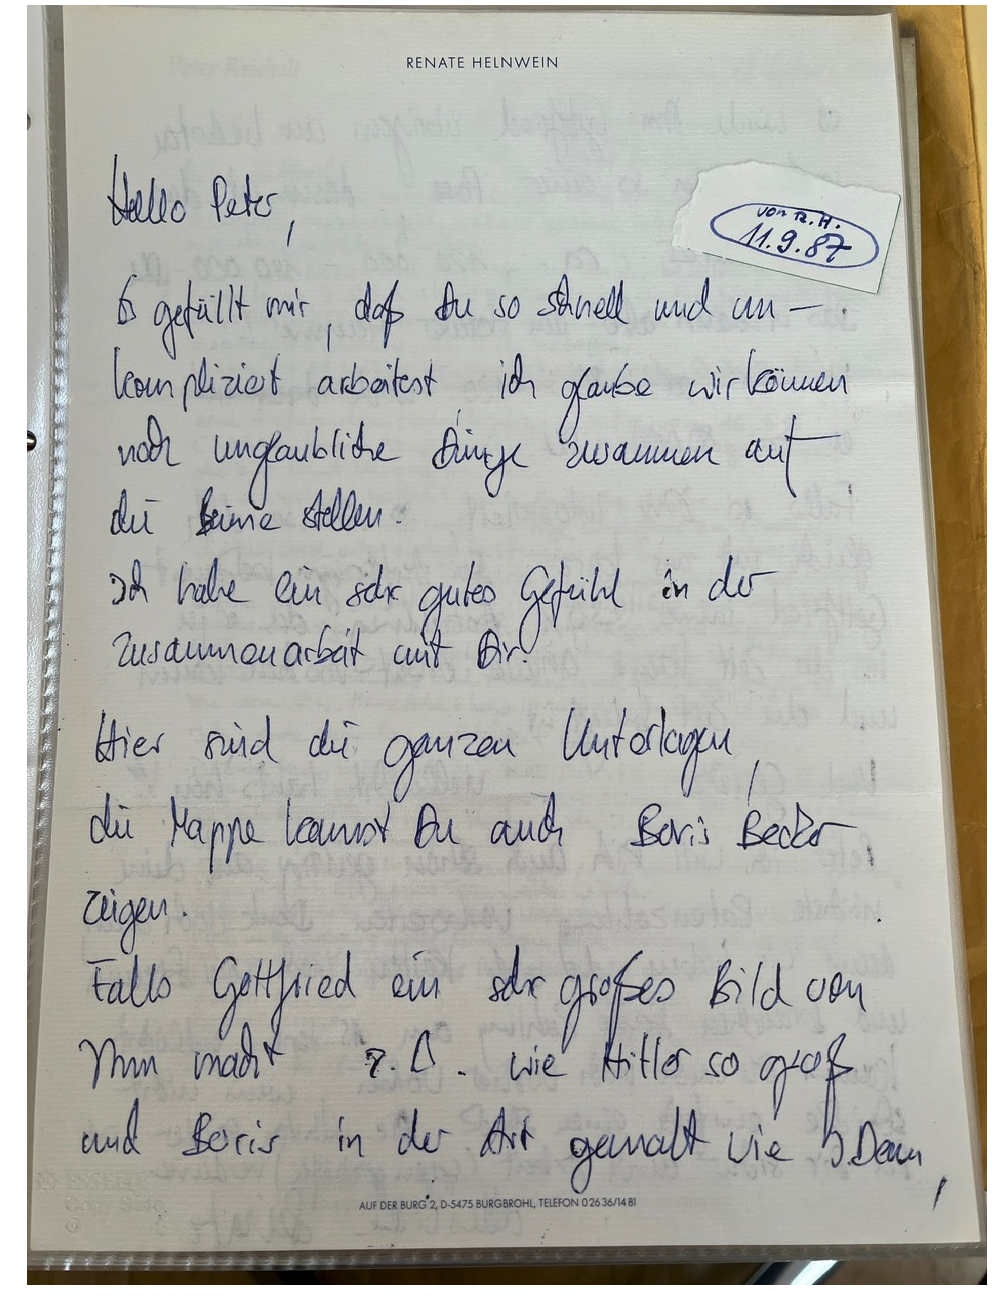 RENATE HELNWEIN
Hallo Peter,
von R.H.
11.9.87
Es gefällt mir, daß Du so schnell und un-
kompliziert arbeitest ich glaube wir können
noch unglaubliche Dinge zusammen auf
die Beine stellen.
Ich habe ein sehr gutes Gefühl in der
Zusammenarbeit mit Dir.
Hier sind die ganzen Unterlagen,
die Mappe kannst Du auch Boris Becker
zeigen.
Falls Gottfried ein sehr großes Bild von
ihm macht z.B. wie Hitler so groß
und Boris in der Art gemalt wie J. Dean,
AUF DER BURG 2, D-5475 BURGBROHL, TELEFON 02636/1481